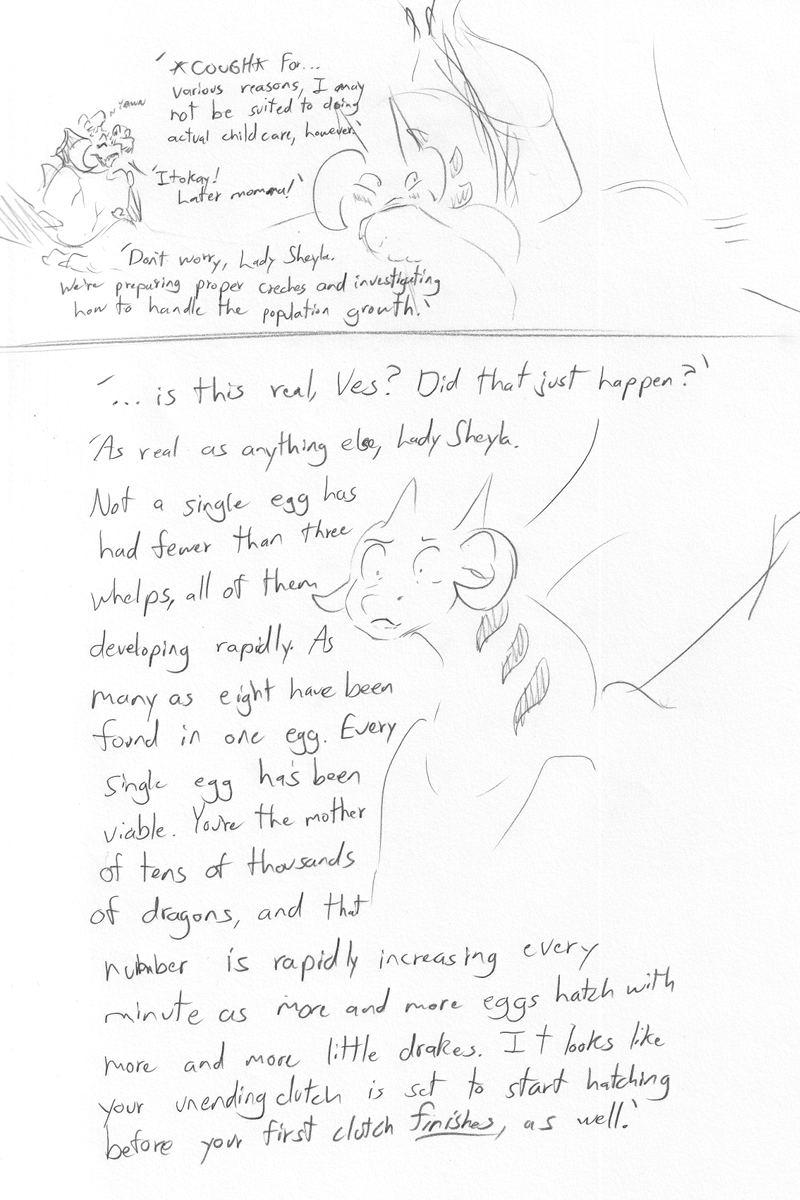 '*COUGH* For...
various reasons, I may
not be suited to doing
actual childcare, however.'
'Itokay!
Later momma!'
'Don't worry, Lady Sheyla.
We're preparing proper creches and investigating
how to handle the population growth.'
'... is this real, Ves? Did that just happen?'
'As real as anything else, Lady Sheyla.
Not a single egg has
had fewer than three
whelps, all of them
developing rapidly. As
many as eight have been
found in one egg. Every
single egg has been
viable. You're the mother
of tens of thousands
of dragons, and that
number is rapidly increasing every
minute as more and more eggs hatch with
more and more little drakes. It looks like
your unending clutch is set to start hatching
before your first clutch finishes, as well.'